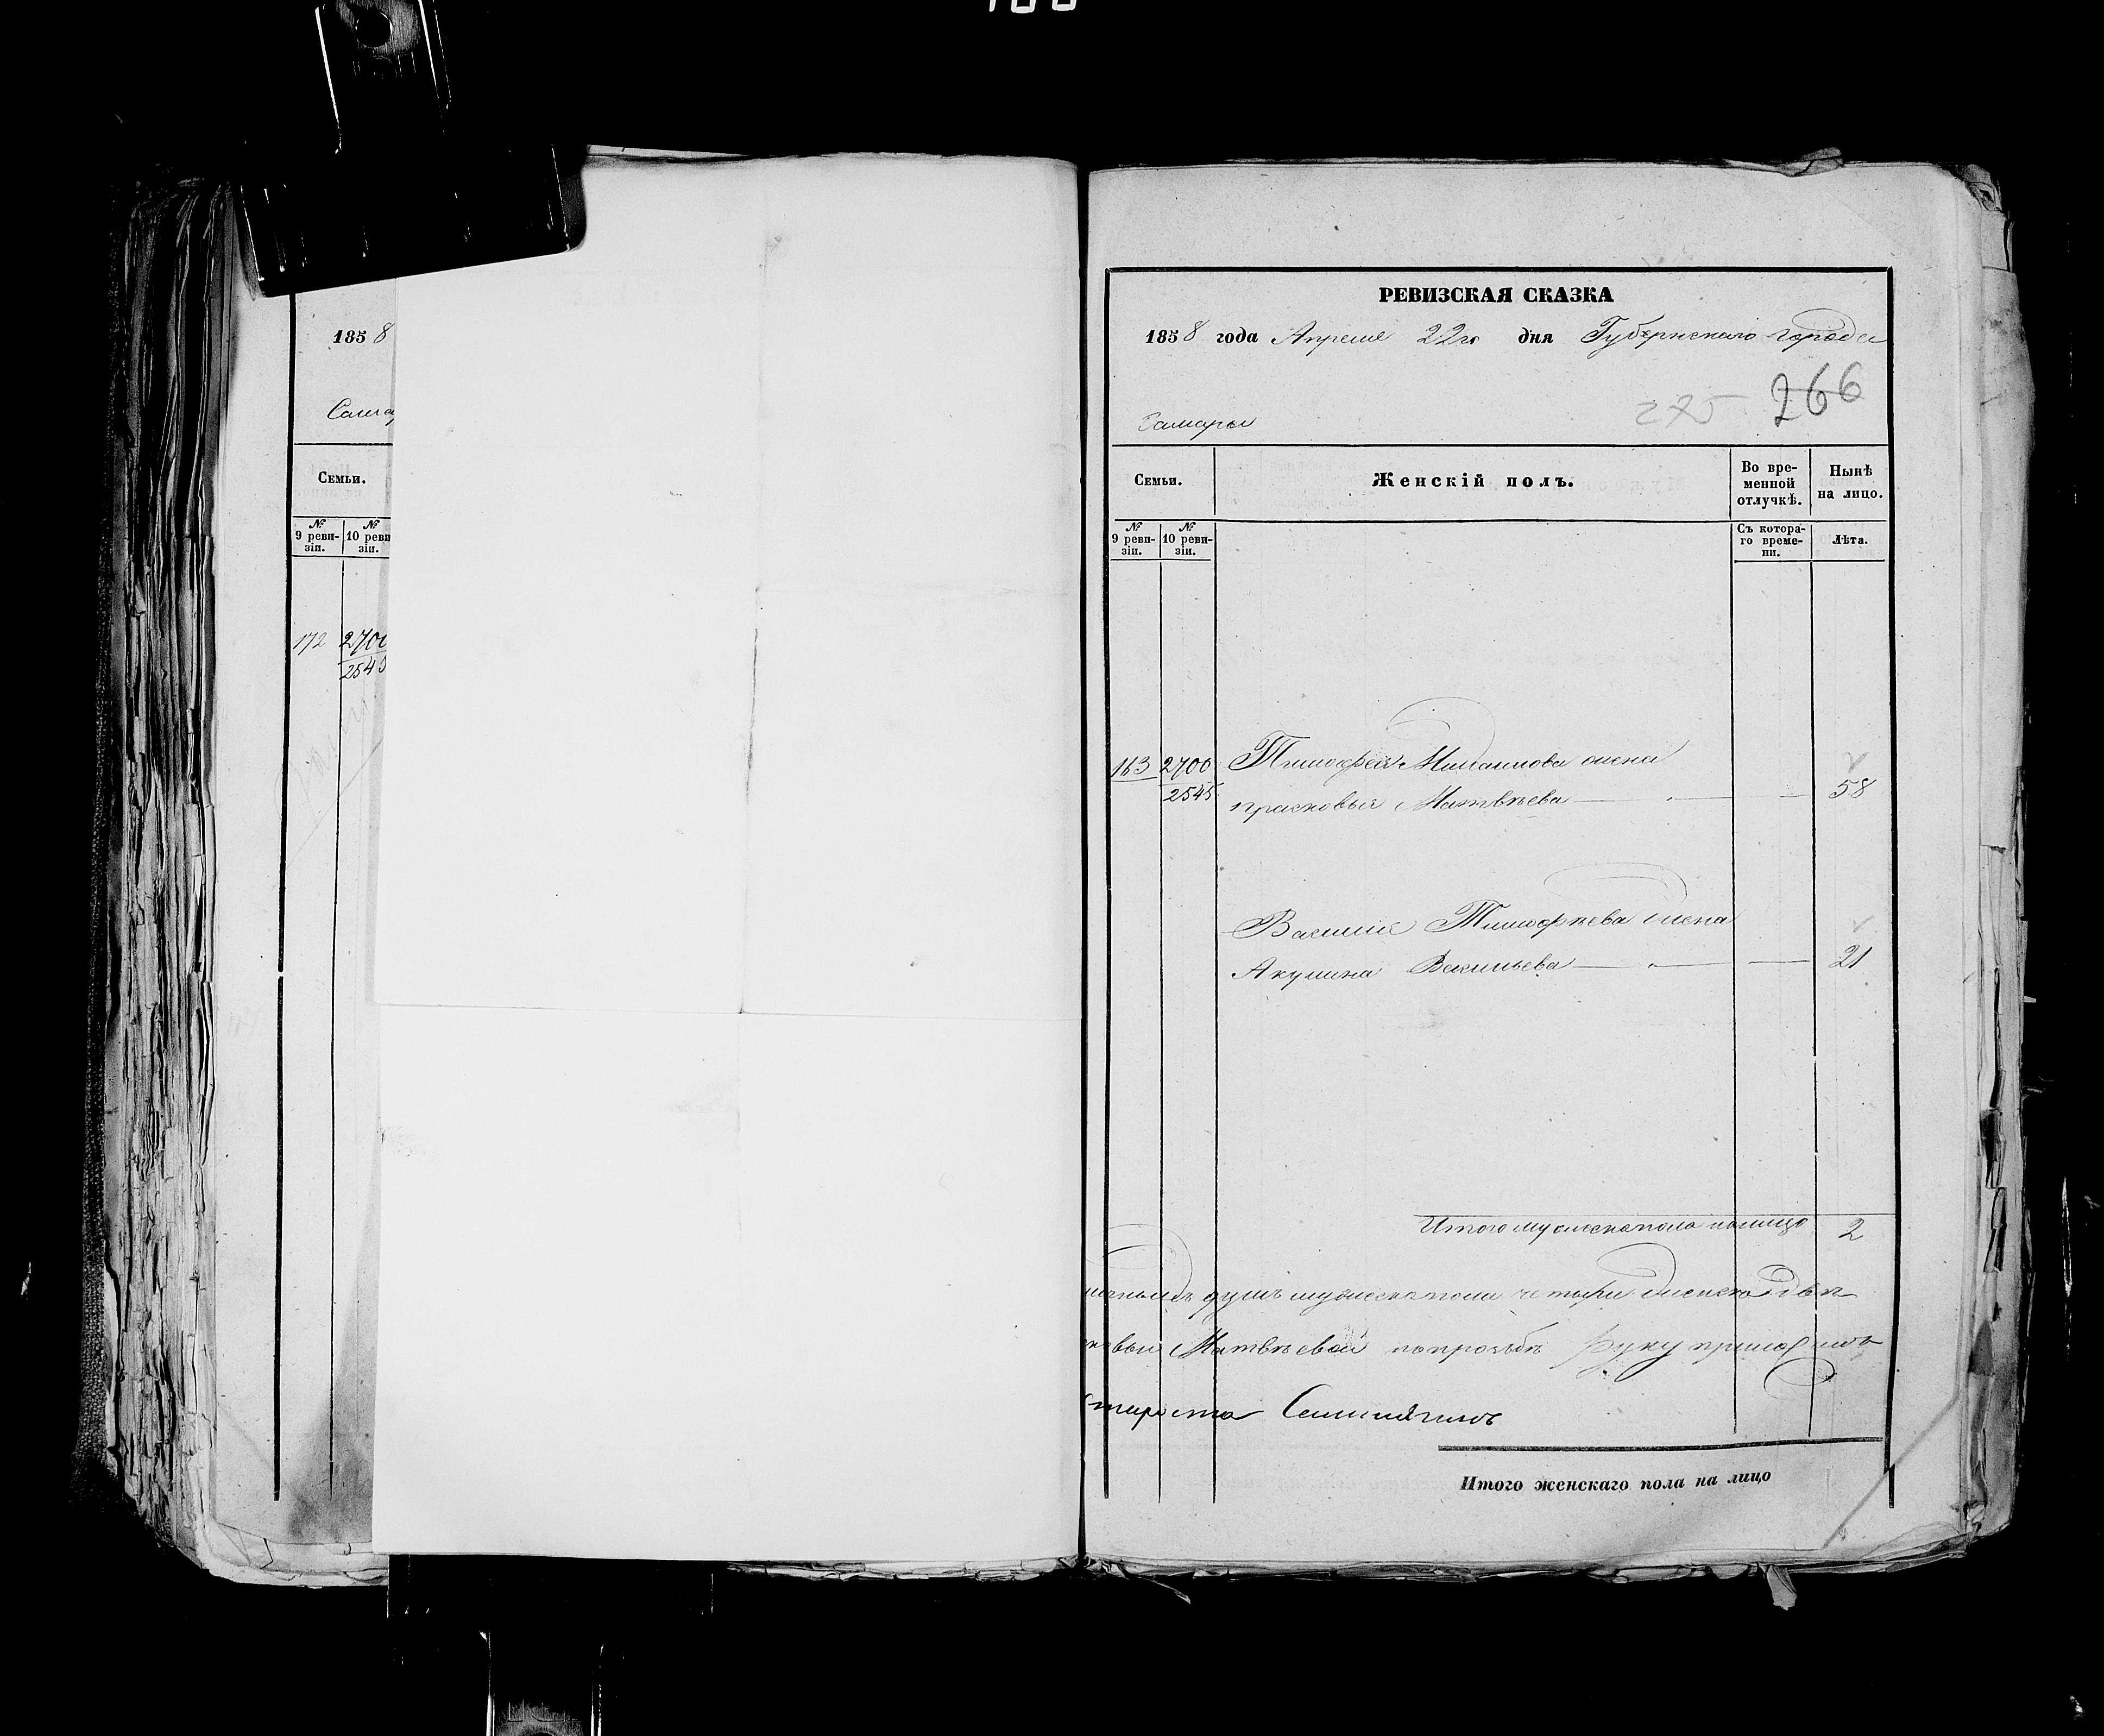 1858
Семьи.
№ 9 реви-зіи.
№ 10 реви
зіи.
172
2545
РЕВИЗСКАЯ СКАЗКА
1858 года Апреля 22го дня Губернскаго города
275 266
Самары
Семьи.
Женскій полъ.
Во вре-
менной
отлучкѣ.
Нынѣ
на лицо.
№
9 реви-
зіи.
№
10 реви-
зіи.
Съ котора-
го време-
ни.
Лѣта.
163 2700 Тимофея жена
2545 Прасковья Матвѣева — " — — 58
Василія Тимофѣева жена
Акулина Васильева — " — — 21
Итого женска пола налицо 2
душъ мужеска пола четыре женска двѣ
Матвѣевой по прозьбѣ руку приложилъ
Староста
Итого женскаго пола на лицо